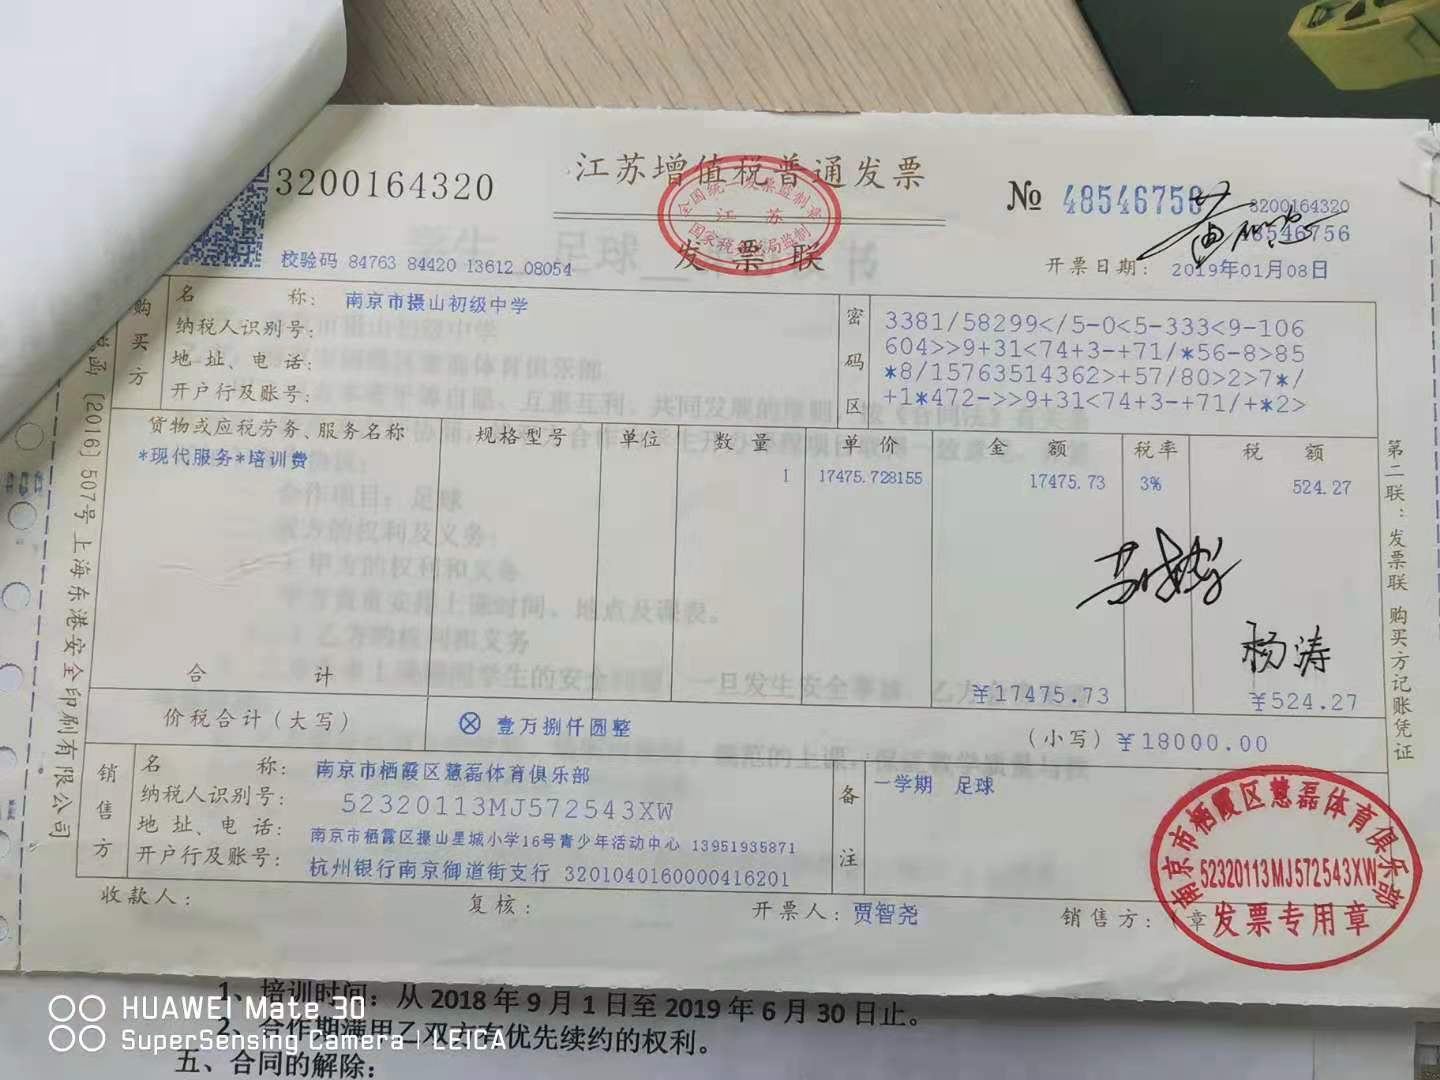 3200164320
江苏增值税普通发票
全国统一发票监制章
江苏
国家税务总局监制
发票联
№ 48546756
3200164320
48546756
校验码 84763 84420 13612 08054
开票日期: 2019年01月08日
购买方
名 称: 南京市摄山初级中学
纳税人识别号:
地址、电话:
开户行及账号:
密码区
3381/58299</5-0<5-333<9-106
604>>9+31<74+3-+71/*56-8>85
*8/15763514362>+57/80>2>7*/
+1*472->>9+31<74+3-+71/+*2>
货物或应税劳务、服务名称 规格型号 单位 数量 单价 金额 税率 税额
*现代服务*培训费 1 17475.728155 17475.73 3% 524.27
杨涛
合 计 ¥17475.73 ¥524.27
价税合计(大写) ⊗ 壹万捌仟圆整 (小写) ¥18000.00
销售方
名 称: 南京市栖霞区慧磊体育俱乐部
纳税人识别号: 52320113MJ572543XW
地址、电话: 南京市栖霞区摄山星城小学16号青少年活动中心 13951935871
开户行及账号: 杭州银行南京御道街支行 3201040160000416201
备注
一学期 足球
收款人: 复核: 开票人: 贾智尧 销售方:(章
南京市栖霞区慧磊体育俱乐部
52320113MJ572543XW
发票专用章
第二联:发票联 购买方记账凭证
函〔2016〕507号上海东港安全印刷有限公司
1、培训时间:从 2018 年 9 月 1 日至 2019 年 6 月 30 日止。
2、合作期满甲乙双方有优先续约的权利。
五、合同的解除:
HUAWEI Mate 30
SuperSensing Camera | LEICA